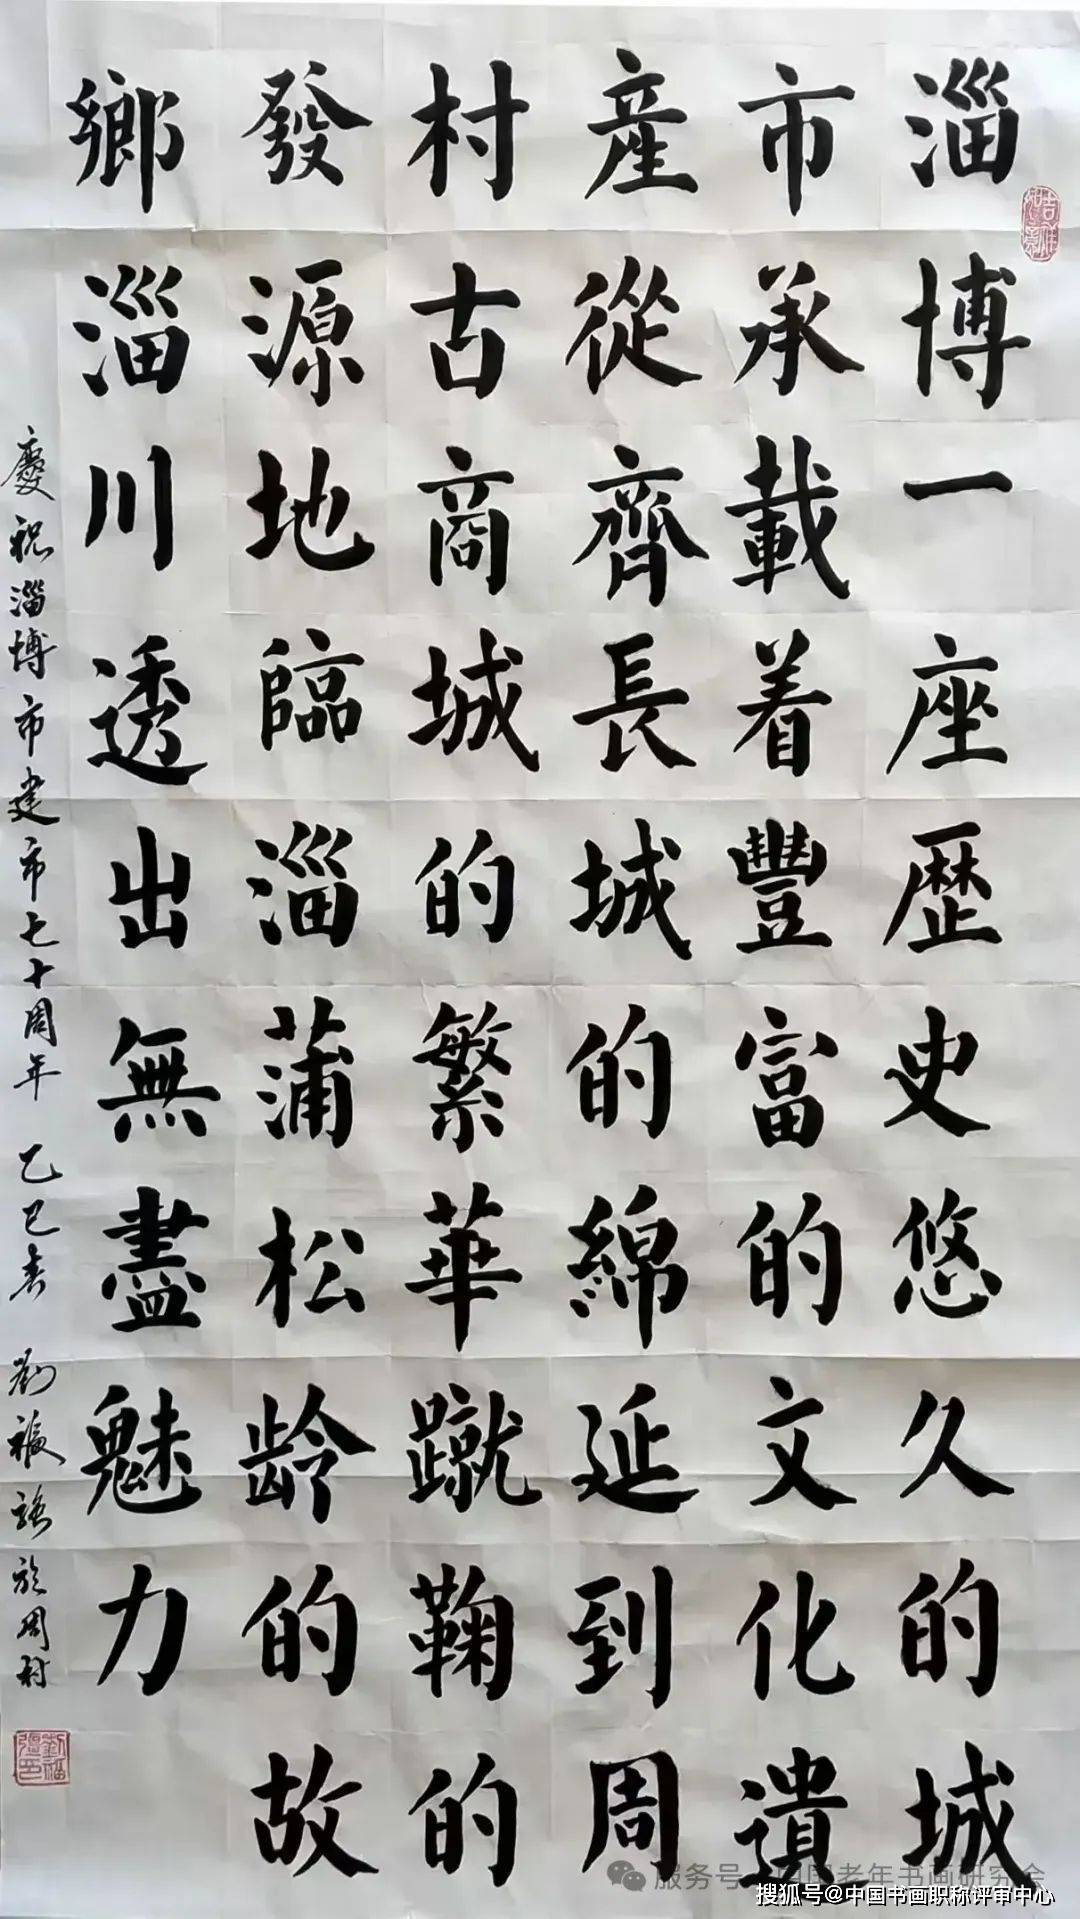 淄博一座歷史悠久的城
市承載着豐富的文化遺
産從齊長城的綿延到周
村古商城的繁華蹴鞠的
發源地臨淄蒲松龄的故
鄉淄川透出無盡魅力
慶祝淄博市建市七十周年 乙巳春 劉福强於周村
劉福强印
服务号 中国老年书画研究会
搜狐号@中国书画职称评审中心